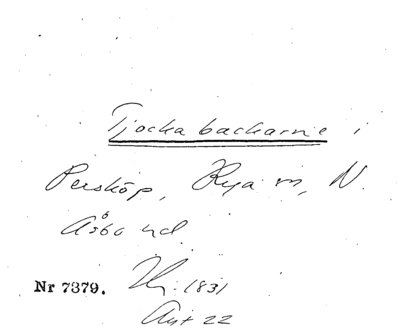 Tjocka backarne i
Perstöp, Rya sn, N.
Åsbo hd
Nr 7379. 1831
Akt 22